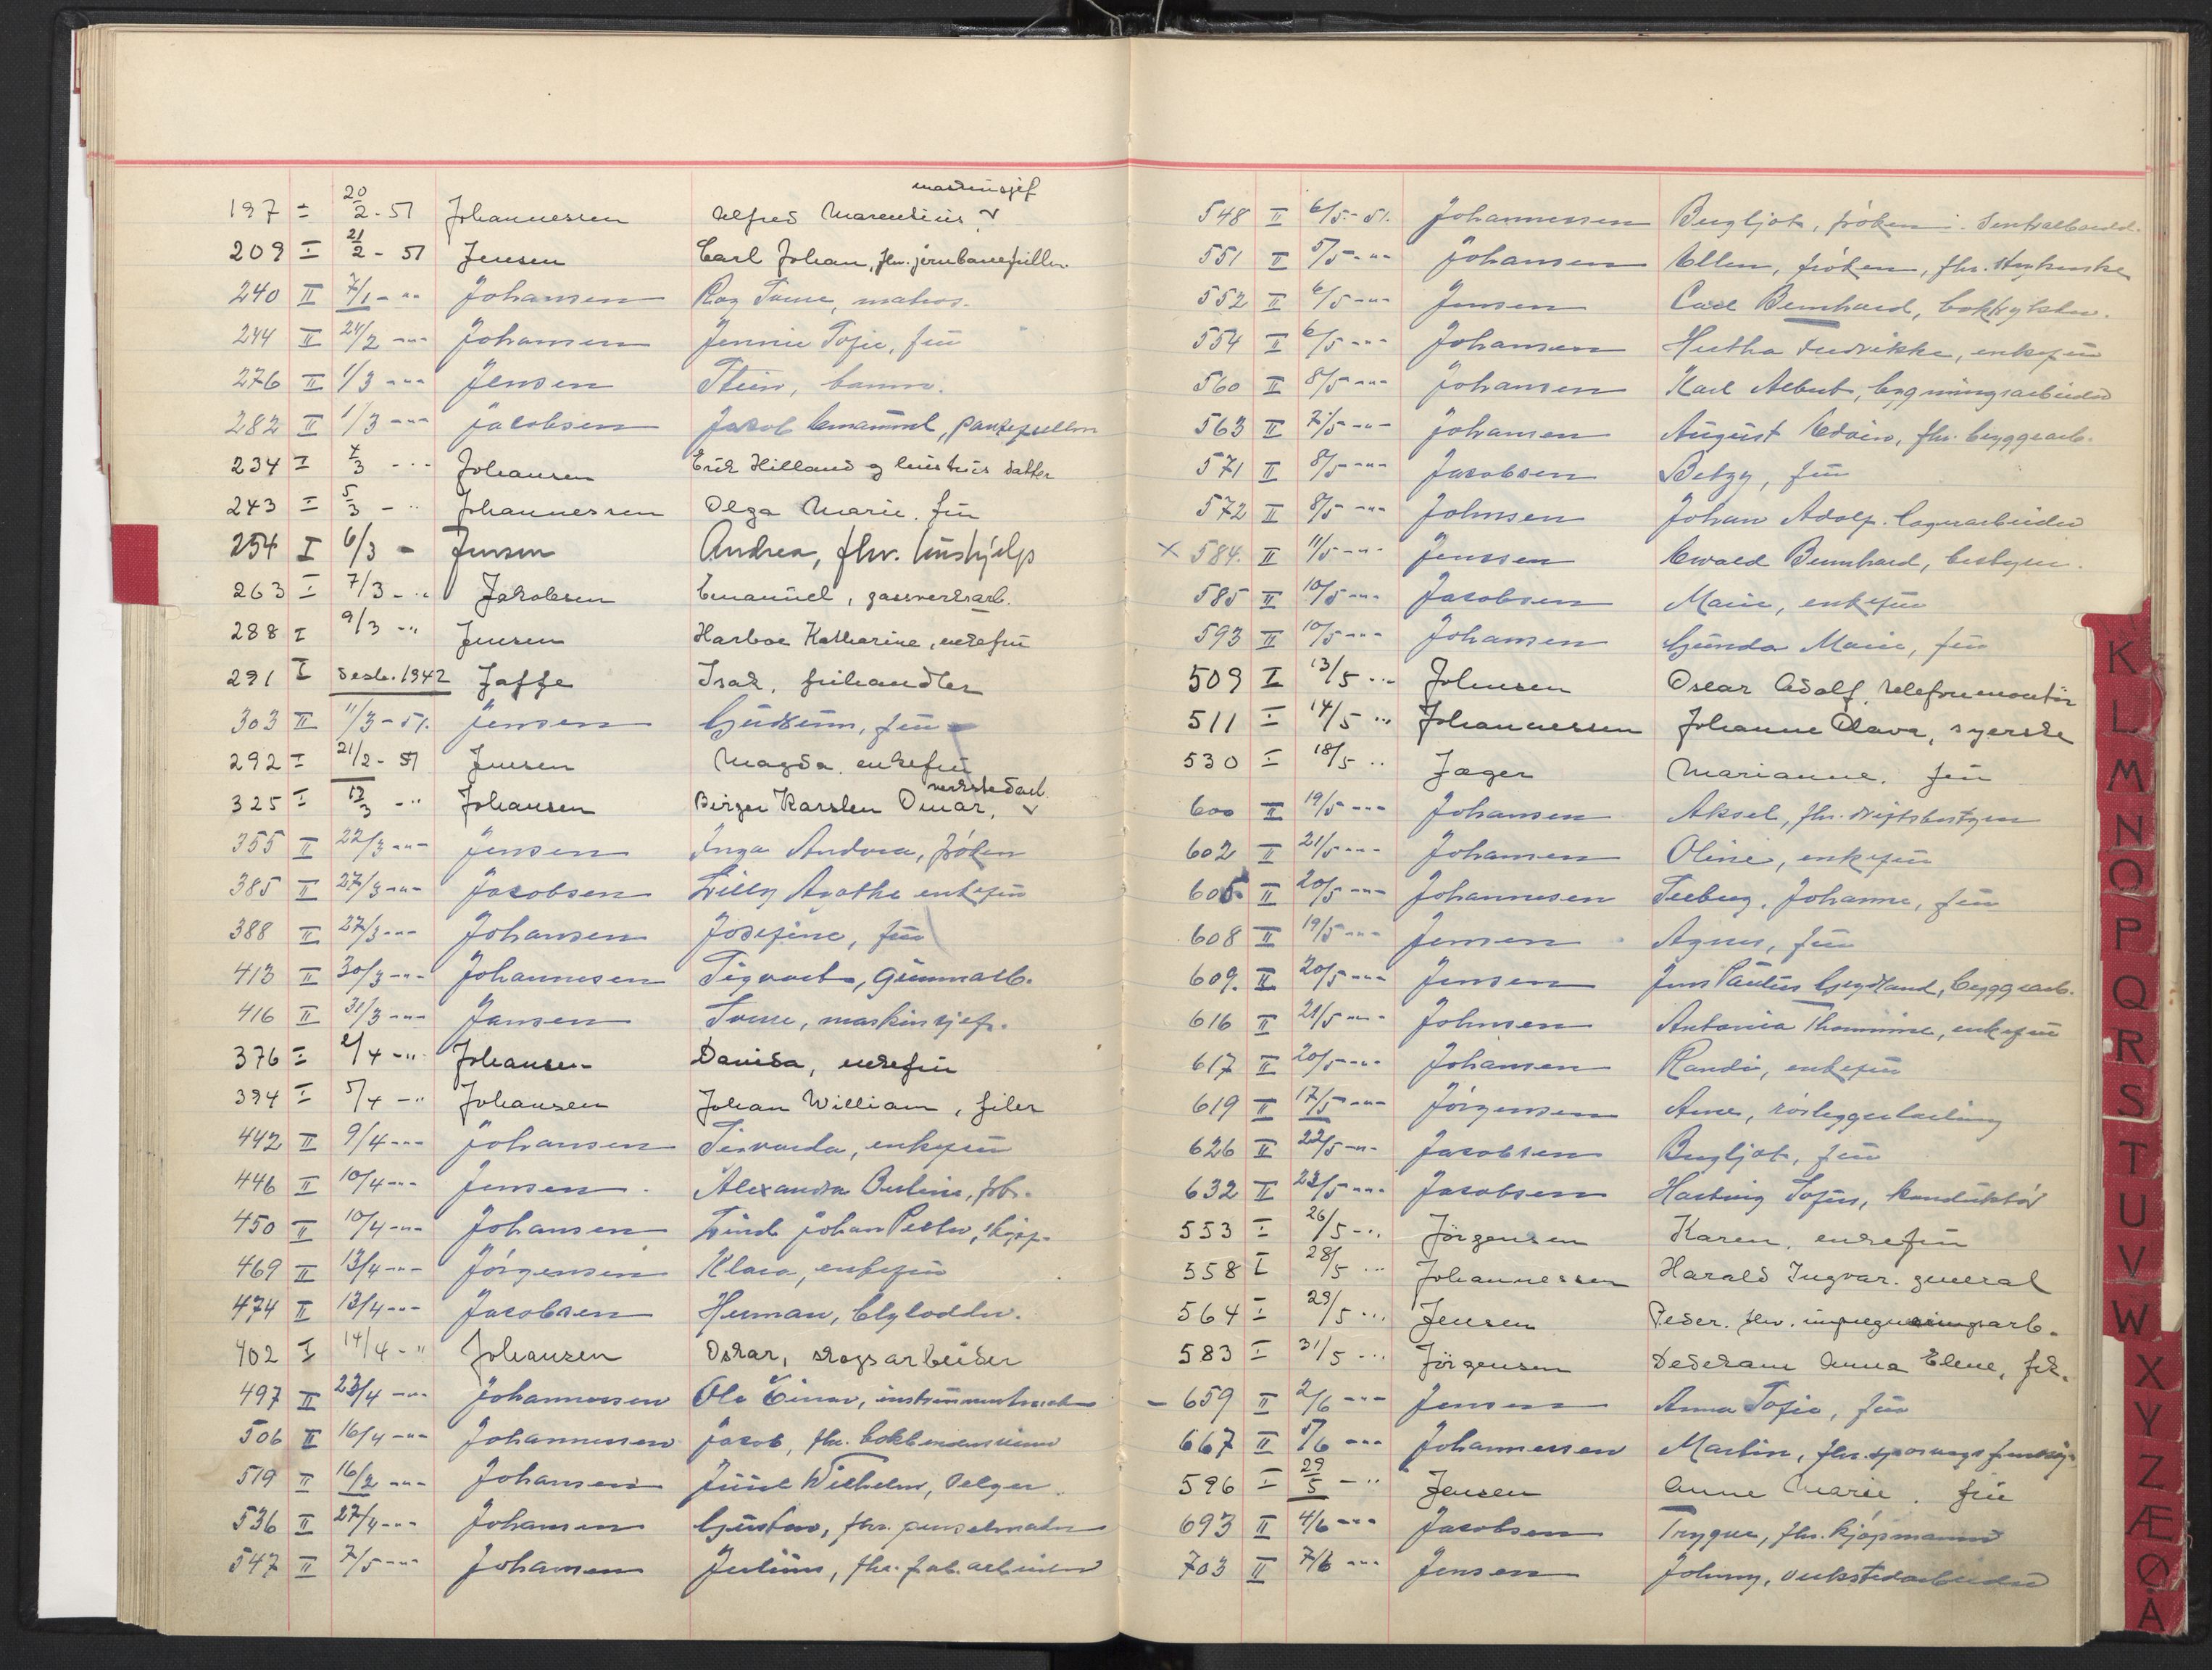 197 I 20/2 - 51 Johannessen Alfred Marentius maskinsjef
209 I 21/2 - 51 Jensen Carl Johan, fhv. jernbanefullm.
240 II 7/1 - "- Johansen Roy Sverre, matros.
244 II 24/2 -"- Johansen Jennie Sofie, frü
276 II 1/3 -"- Jensen Stein, barn.
282 II 1/3 -"- Jacobsen Jakob Emanuel,
234 I 4/3 -"- Johansen Erik Hilland og hustrüs datter
243 I 5/3 - " Johannessen Olga Marie. frü
254 I 6/3 - Jensen Andrea, fhv. hüshjelp
263 I 7/3 - " Jakobsen Emanüel, gassverksarb.
288 I 9/3 - " Jensen Harboe Katharine, enkefrü
291 I Desbr. 1942 Jaffe Isak, handler
303 II 11/3 - 51. Jensen Güdrünn, frü
292 I 21/2 - 51 Jensen Magda. enkefrü
325 I 12/3 - " Johansen Birger Karsten Omar, verkstedarb.
355 II 22/3 -"- Jensen Inga Andora, frøken
385 II 27/3 -"- Jacobsen Lilly Agathe enkefrü
388 II 27/3 -"- Johansen Josefine, frü
413 II 30/3 -"- Johannesen Sigvart, Gümmiarb.
416 II 31/3 -"- Jansen Sverre, maskinsjef.
376 I 2/4 -"- Johansen Davida, enkefrü
394 I 5/4 - " Johansen Johan William, filer
442 II 9/4 -"- Johansen Sigvarda, enkefrü
446 II 10/4 -"- Jensen Alexandra Berline,
450 II 10/4 -"- Johansen Lind Johan Peder,
469 II 13/4 -"- Jörgensen Klara, enkefrü
474 II 13/4 -"- Jacobsen Herman, blylodder.
402 I 14/4 - " Johansen Oskar, skogsarbeider
497 II 23/4 -"- Johannessen Ole Einar,
506 II 16/4 -"- Johannessen Jacob, fhv.
519 II 16/2 -"- Johansen Jüül Wilhelm, selger.
536 II 27/4 -"- Johansen Güstav, fhv. penselmaker
547 II 7/5 -"- Johansen Jülius, fhv. fab. arbeider
548 II 6/5 - 51. Johannessen Bergljot, frøken i Sentralbordd.
551 II 5/5 -"- Johansen Ellen, frøken, fhv.
552 II 6/5 -"- Jensen Carl Bernhard, boktrykker.
554 II 6/5 -"- Johansen Hertha Fredrikke, enkefrü
560 II 8/5 -"- Johansen Karl Albert, bygningsarbeider
563 II 7/5 -"- Johansen August Edvin, fhv. byggearb.
571 II 8/5 -"- Jacobsen Betzy, frü
572 II 8/5 -"- Johnsen Johan Adolf. lagerarbeider
× 584. II 11/5 -"- Jenssen Ewald Bernhard, bestyrer.
585 II 10/5 -"- Jacobsen Marie, enkefrü
593 II 10/5 -"- Johansen Günda Marie, frü
509 I 13/5 -"- Johnsen Oscar Adolf, telefonmontör
511 I 14/5 " Johannessen Johanne Olava, syerske
530 I 18/5 " Jæger Marianne. frü
600 II 19/5 -"- Johansen Aksel, fhv. driftsbestyrer
602 II 21/5 -"- Johansen Oline, enkefrü
605 II 20/5 -"- Johannesen Seeberg, Johanne, frü
608 II 19/5 -"- Jensen Agnes, frü
609. II 20/5 -"- Jensen Jens Paulus Gjerdland, byggearb.
616 II 21/5 -"- Johnsen Antonia Thommine, enkefrü
617 II 20/5 -"- Johansen Randi, enkefrü
619 II 17/5 -"- Jörgensen Arne, rörleggerlærling
626 II 22/5 -"- Jacobsen Bergljot, frü
632 II 23/5 -"- Jacobsen Hartvig Sofus, konduktör
553 I 26/5 - " Jörgensen Karen. enkefrü
558 I 28/5 " Johannessen Harald Ingvar. general
564 I 29/5 " Jensen Peder. fhv. impregneringsarb.
583 I 31/5 " Jörgensen Dedekam Anna Elene, frk.
- 659 II 2/6 -"- Jensen Anna Sofie, frü
667 II 5/6 -"- Johannessen Martin, fhv. sporvognsfunksj.
596 I 29/5 - " Jensen Anne Marie. frü
693 II 4/6 -"- Jacobsen Trygve, fhv. kjøpmann
703 II 7/6 -"- Jensen Johnny, verkstedarbeider
K
L
M
N
O
P
Q
R
S
T
U
V
W
X
Y
Z
Æ
Ø
Å